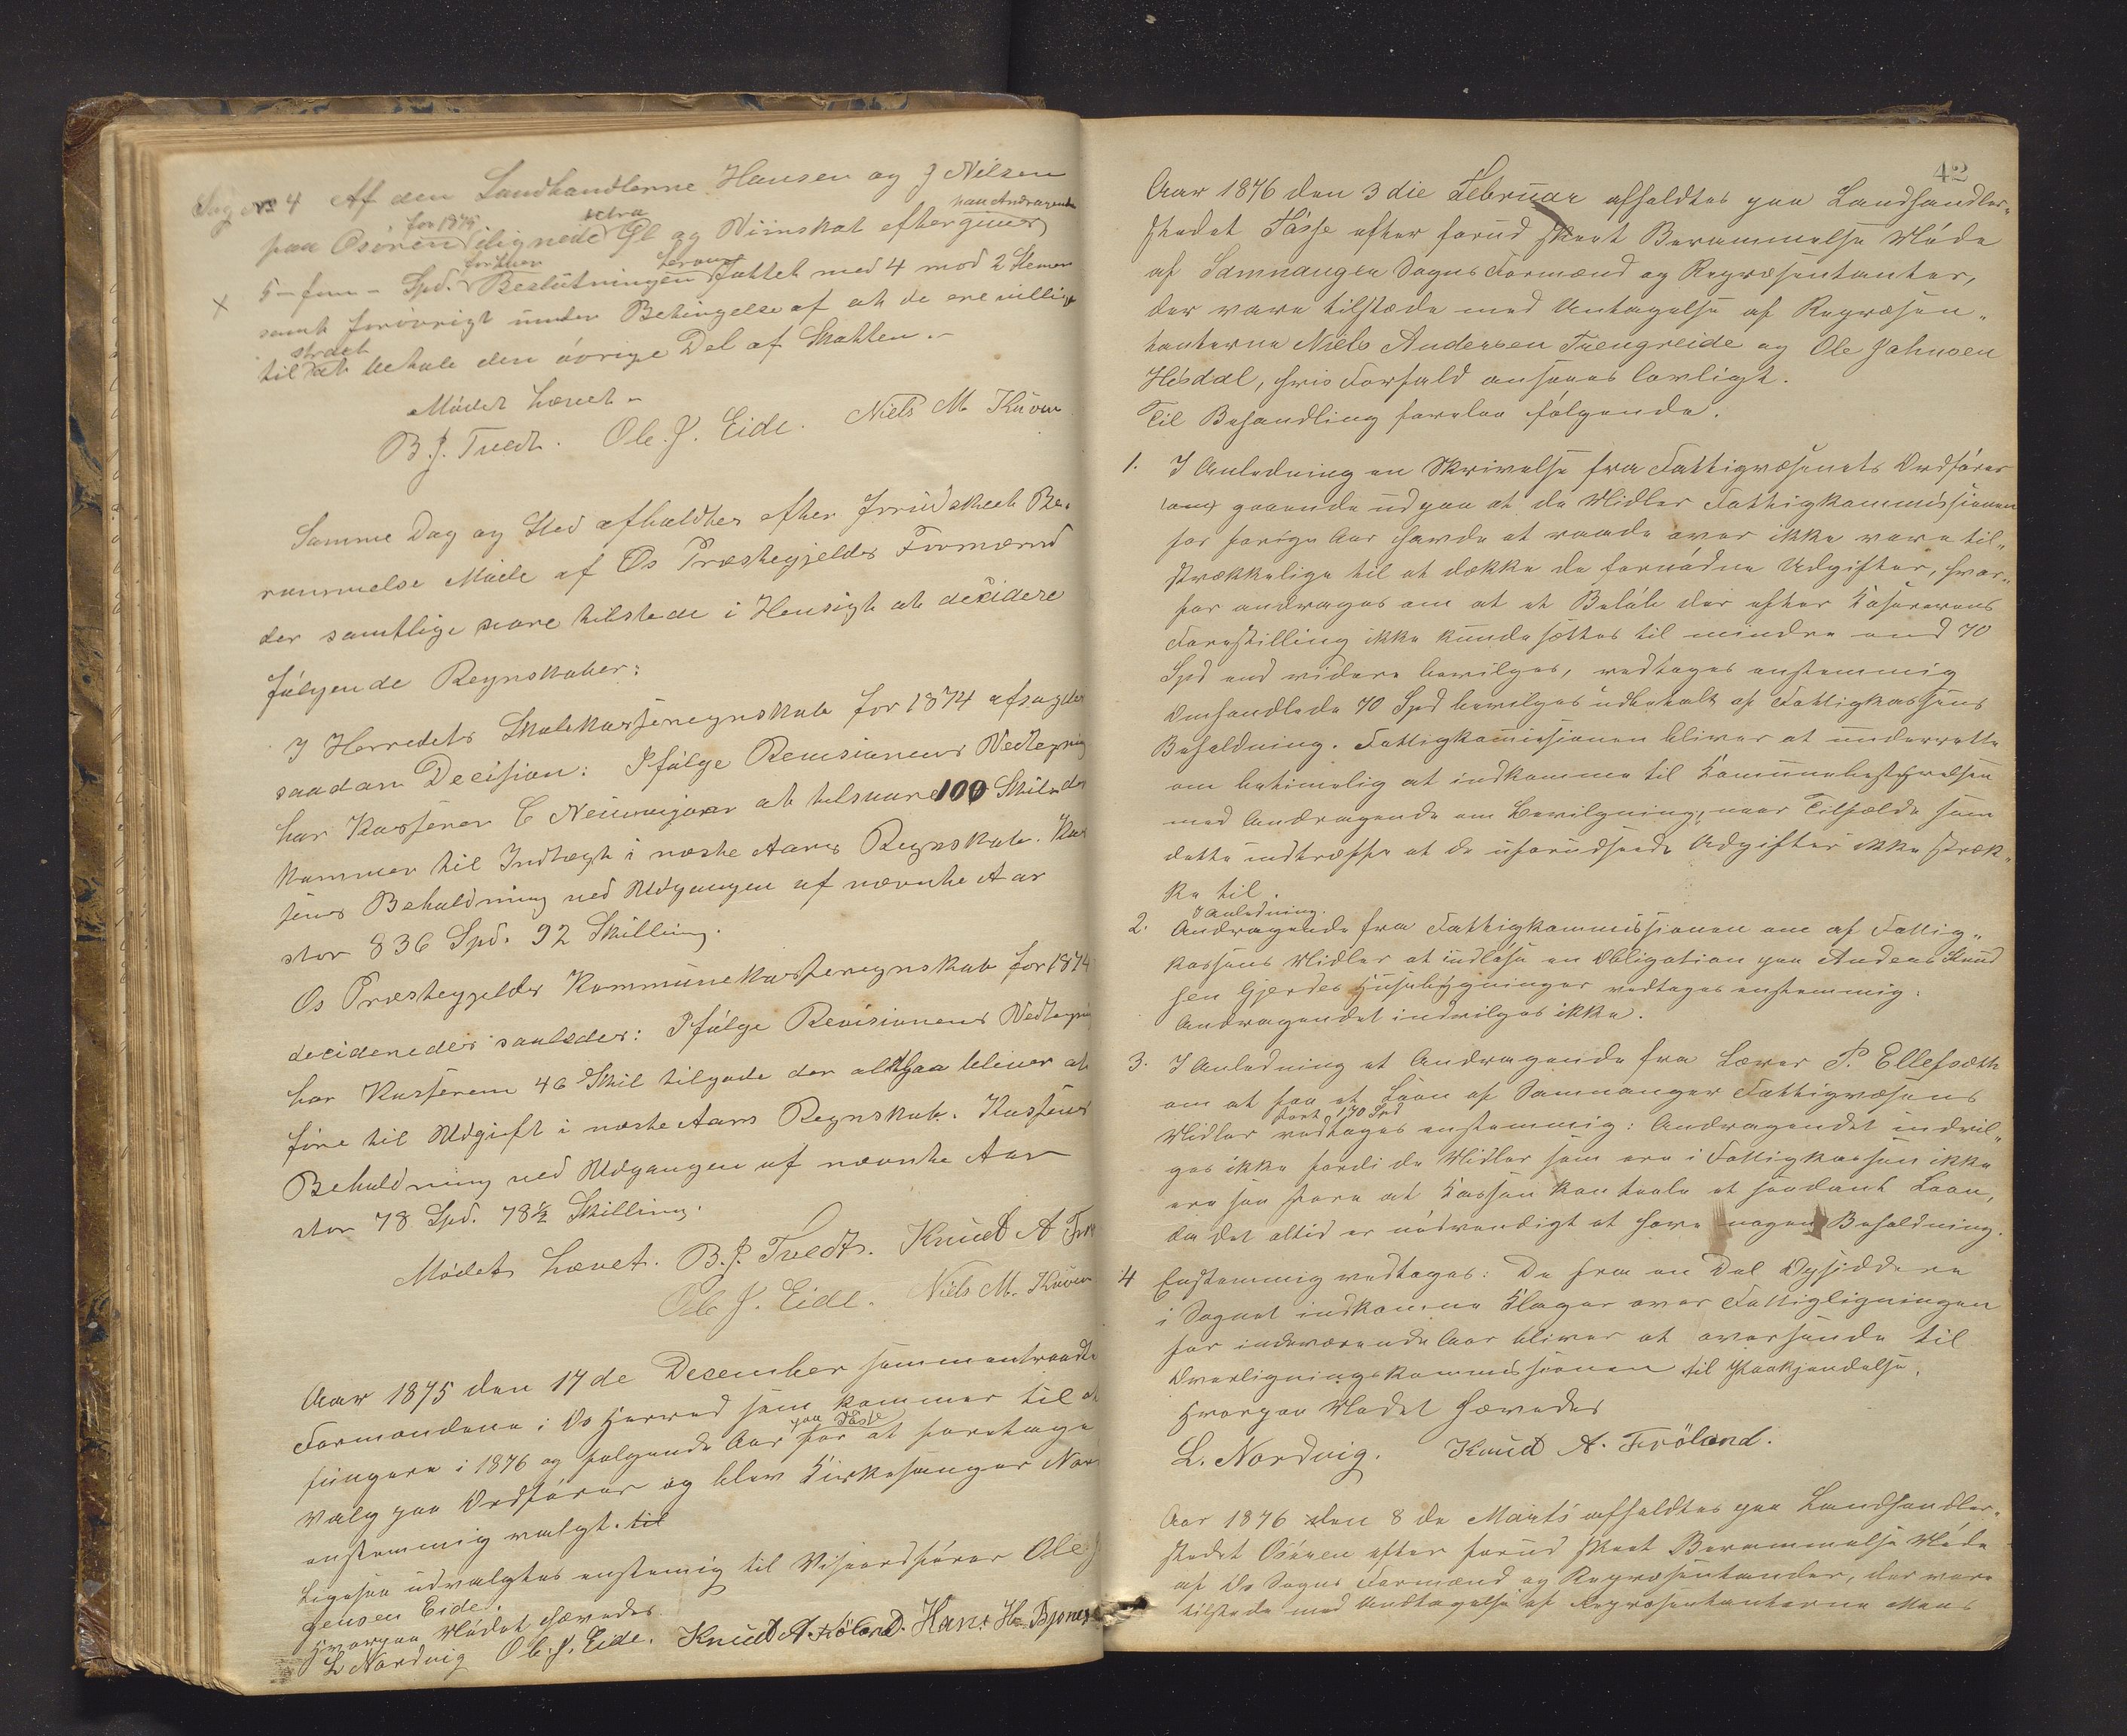 Sag No 4 Af den Landhandlerne Hansen og J Nilsen
paa Osören for 1875 ilignede extra Øl og Viinskat eftergives paa Andragende
5 - fem - Spd. for hver Beslutningen herom fattet med 4 mod 2 Stemmer
samt forövrigt under Betingelse af at de ere villige
til strax at betale den övrige Del af Skatten. -
Mödet hævet -
B. J. Tvedt. Ole. J. Eide. Niels M Kuven
Samme Dag og Sted afholdtes efter forud skeet Be-
rammelse Möde af Os Præstegjelds Formænd
der samtlige vare tilstede i Hensigt at decidere
fölgende Regnskaber:
I Herredets Skolekasseregnskab for 1874 afsagdes
saadan Decision: Ifölge Revisionens Vedtegning
har Kasserer C Neumejaar at tilsvare 100 Skil der
kommer til Indtægt i næste Aars Regnskab. Kas
sens Behuldning ved Udgangen af nævnte Aar
stor 836 Spd. 92 Skilling.
Os Præstegjelds Kommünekasseregnskab for 1874
decideredes saaledes: Ifölge Revisionens Vedtegning
har Kasseren 46 Skil tilgode der altsaa bliver at
före til Udgift i næste Aars Regnskab. Kassens
Behuldning ved Udgangen af nævnte Aar
stor 78 Spd. 78½ Skilling.
Mödet hævet. B. J. Tvedt. Knud A Frö
Ole J. Eide. Niels M. Kuven
Aar 1875 den 17de December sammentraadte
Formændene i Os Herred som kommer til at
füngere i 1876 og fölgende Aar paa Tösse for at foretage
Valg paa Ordförer og blev Kirkesanger Nor
enstemmig valgt. til
Ligesaa udvalgtes enstemig til Viseordförer Ole J
gensen Eide.
Hvorpaa Mödet hævedes
L Nordvig Ole. J. Eide. Knud A. Fröland. Hans H. Bjørnes
42
Aar 1876 den 3die Februar afholdtes paa Landhandler-
stedet Tösse efter forud skeet Berammelse Möde
af Samnanger Sogns Formænd og Repræsentanter,
der vare tilstede med Untagelse af Repræsen-
tanterne Niels Andersen Trengreide og Ole Johnsen
Hisdal, hvis Forfald ansees lovligt.
Til Behandling forelaa fölgende.
1. I Anledning en Skrivelse fra Fattigvæsenets Ordförer
(om) gaaende ud paa at de Midler Fattigkommissionen
for forige Aar havde at raade over ikke vare til-
strækkelige til at dække de fornödne Udgifter, hvor-
for andrages om at et Belöb der efter Kasererens
Forestilling ikke kunde sættes til mindre end 70
Spd end videre bevilges, vedtoges enstemmig
Omhandlede 70 Spd bevilges udbetalt af Fattigkassens
Beholdning. Fattigkomissionen bliver at underrette
om betimelig at indkomme til Komunebestyrelsen
med Andragende om Bevilgning, naar Tilfælde som
dette indtræffe at de uforudseede Udgifter ikke stræk-
ke til.
2. I Anledning. Andragende fra Fattigkommissionen om af Fattig-
kassens Midler at indlöse en Obligation paa Anders Knud
sen Gjerdes Husebygninger vedtages enstemmig:
Andragendet indvilges ikke.
3. I Anledning et Andragende fra Lærer P. Ellefsæth
om at faa et Laan af Samnanger Fattigvæsens
Midler stort 170 Spd vedtages enstemmig: Andragendet indvil-
ges ikke fordi de Midler som ere i Fattigkassen ikke
ere saa store at Kassen kan taale et saadant Laan,
da det altid er nödvendigt at have nogen Beholdning.
4 Enstemmig vedtages: De fra en Del Opsiddere
i Sognet indkomne Klager over Fattigligningen
for indeværende Aar bliver at oversende til
Overligningskommissionen til Paakjendelse.
Hvorpaa Mödet hævedes
L. Nordvig. Knud A. Fröland.
Aar 1876 den 8de Marts afholdtes paa Landhandler-
stedet Osören efter forud skeet Berammelse Möde
af Os Sogns Formænd og Repræsentander, der vare
tilstede med Undtagelse af Repræsentanterne Mons